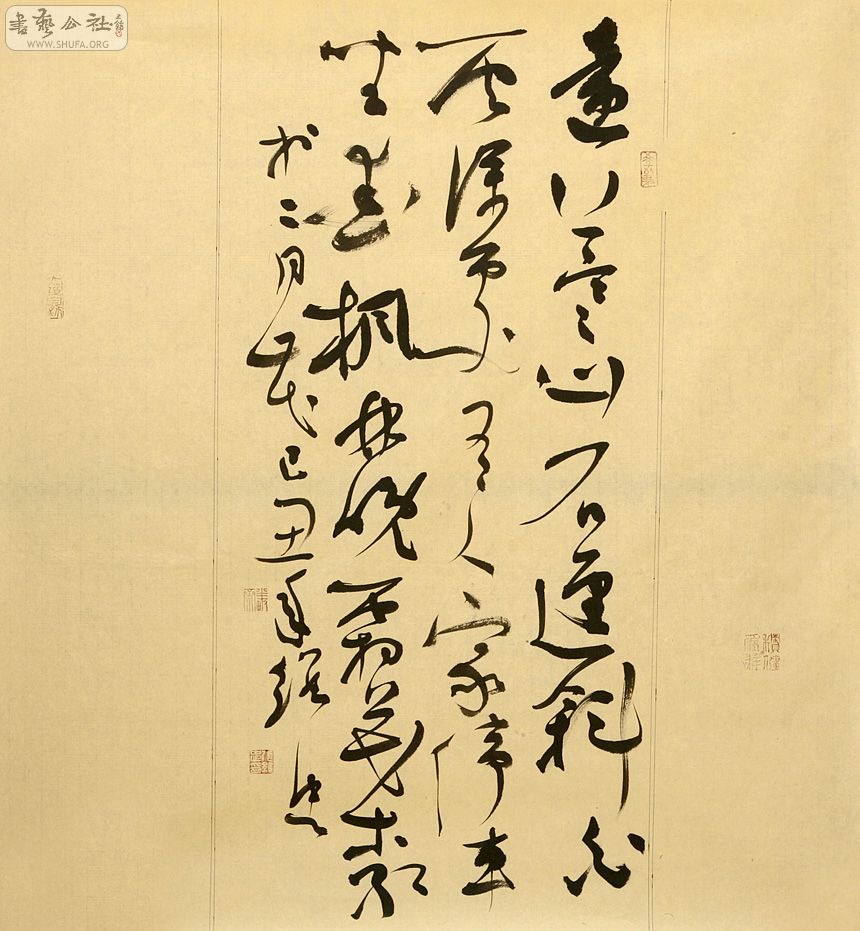 書藝公社
WWW.SHUFA.ORG
遠上寒山石徑斜白
雲深處有人家停車
坐愛楓林晚霜葉紅
於二月花己丑年